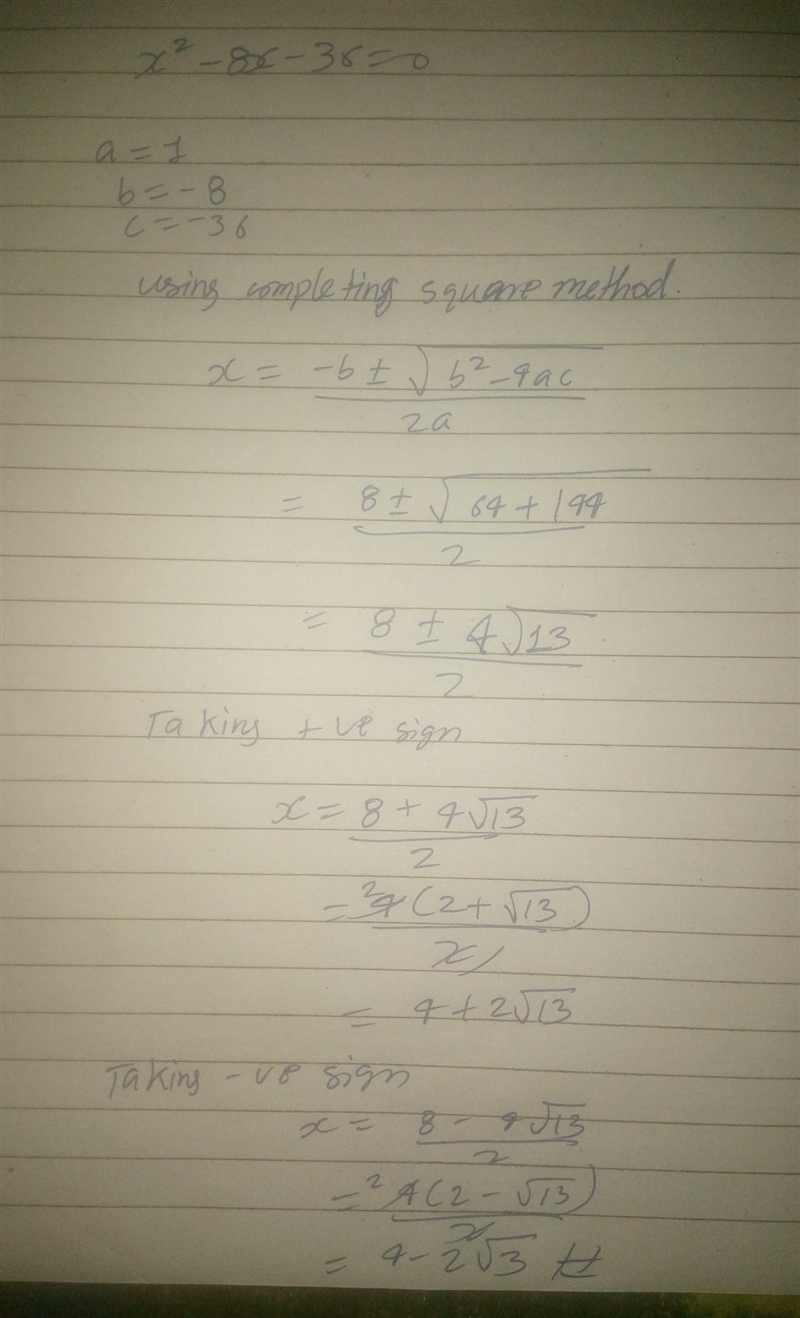 x² - 8x - 36 = 0
a = 1
b = - 8
c = - 36
using completing square method.
x = -b ± √b² - 4ac
2a
= 8 ± √64 + 144
2
= 8 ± 4√13
2
Taking +ve sign
x = 8 + 4√13
2
= ² 4(2 + √13)
2
= 4 + 2√13
Taking -ve sign
x = 8 - 4√13
2
= ² 4(2 - √13)
2
= 4 - 2√3